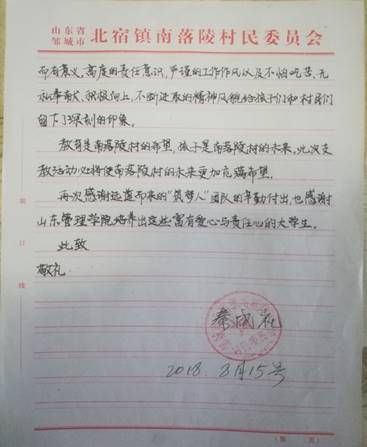 山东省
邹城市 北宿镇南落陵村民委员会
而有意义，高度的责任意识，严谨的工作作风以及不怕吃苦、无
私奉献、积极向上、不断进取的精神风貌给孩子们和村民们
留下了深刻的印象。
教育是南落陵村的希望，孩子是南落陵村的未来，此次支
教活动必将使南落陵村的未来更加充满希望。
再次感谢远道而来的“筑梦人”团队的辛勤付出，也感谢
山东管理学院培养出这些富有爱心与责任心的大学生。
此致
敬礼
装
订
线
秦成礼
2018. 8月15号
（第 页）